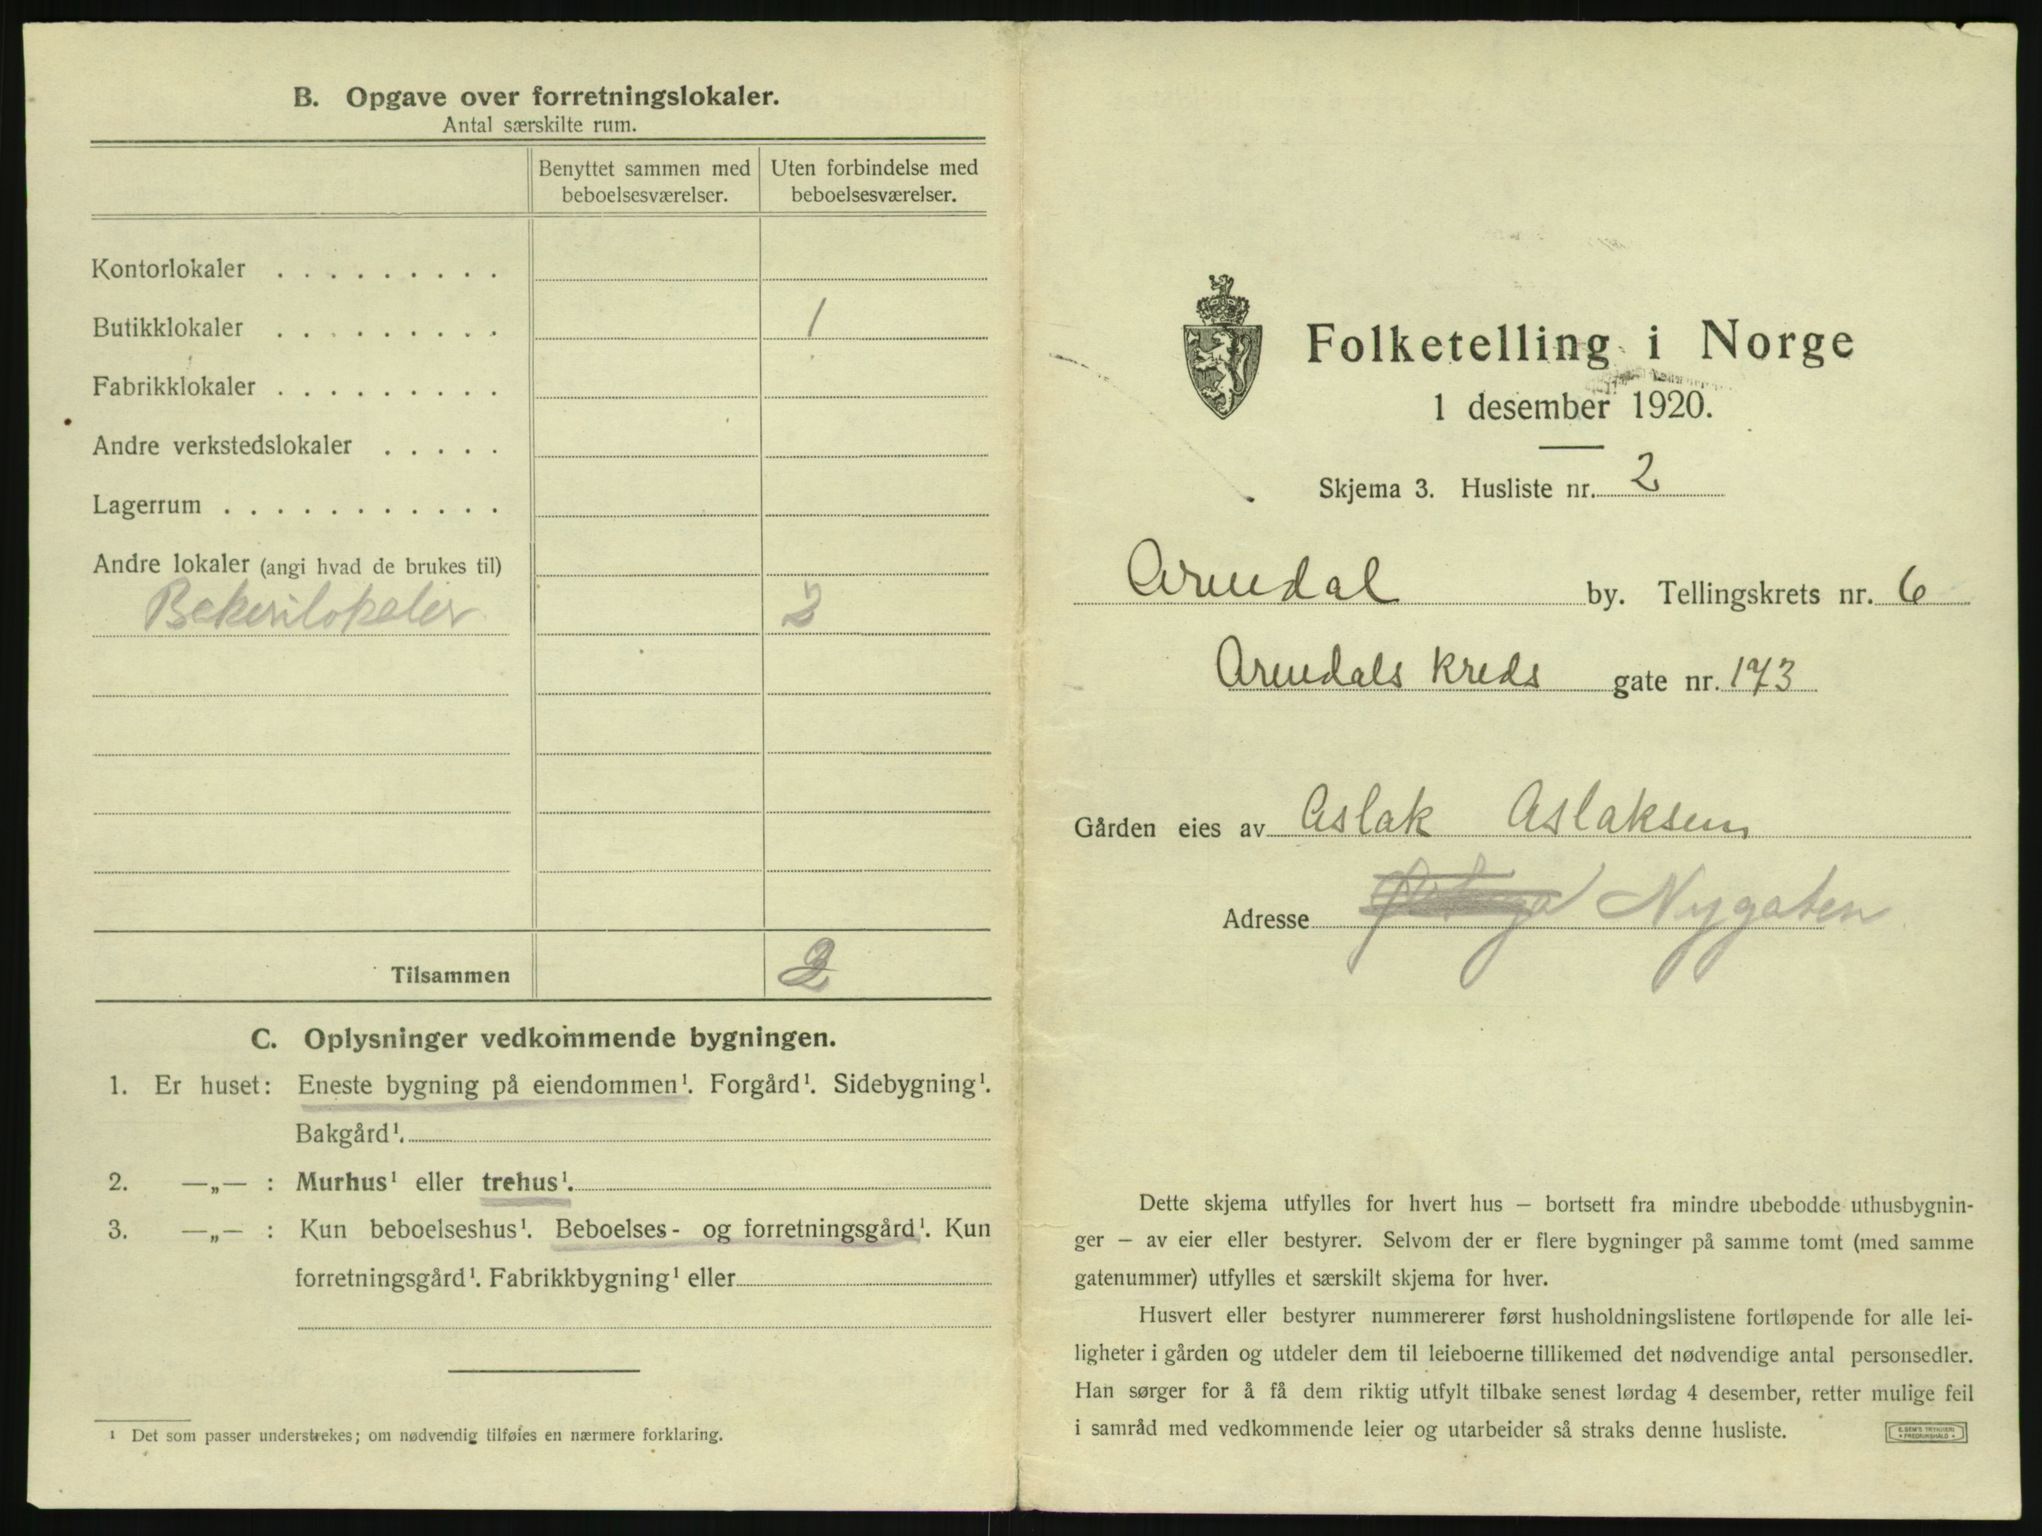 B. Opgave over forretningslokaler.
Antal særskilte rum.
Benyttet sammen med beboelsesværelser.
Uten forbindelse med beboelsesværelser.
Kontorlokaler . . . . . . . . .
Butikklokaler . . . . . . . . . 1
Fabrikklokaler . . . . . . . . .
Andre verkstedslokaler . . . . .
Lagerrum . . . . . . . . . . .
Andre lokaler (angi hvad de brukes til)
Bekerilokaler 2
Tilsammen
C. Oplysninger vedkommende bygningen.
1. Er huset: Eneste bygning på eiendommen¹. Forgård¹. Sidebygning¹.
Bakgård¹.
2. —„— : Murhus¹ eller trehus¹.
3. —„— : Kun beboelseshus¹. Beboelses- og forretningsgård¹. Kun
forretningsgård¹. Fabrikkbygning¹ eller
¹ Det som passer understrekes; om nødvendig tilføies en nærmere forklaring.
Folketelling i Norge
1 desember 1920.
Skjema 3. Husliste nr. 2
Arendal by. Tellingskrets nr. 6
Arendals kreds gate nr. 173
Gården eies av Aslak Aslaksen
Adresse Nygaten
Dette skjema utfylles for hvert hus – bortsett fra mindre ubebodde uthusbygnin-
ger – av eier eller bestyrer. Selvom der er flere bygninger på samme tomt (med samme
gatenummer) utfylles et særskilt skjema for hver.
Husvert eller bestyrer nummererer først husholdningslistene fortløpende for alle lei-
ligheter i gården og utdeler dem til leieboerne tillikemed det nødvendige antal personsedler.
Han sørger for å få dem riktig utfylt tilbake senest lørdag 4 desember, retter mulige feil
i samråd med vedkommende leier og utarbeider så straks denne husliste.
E. SEM'S TRYKKERI
FREDRIKSHALD